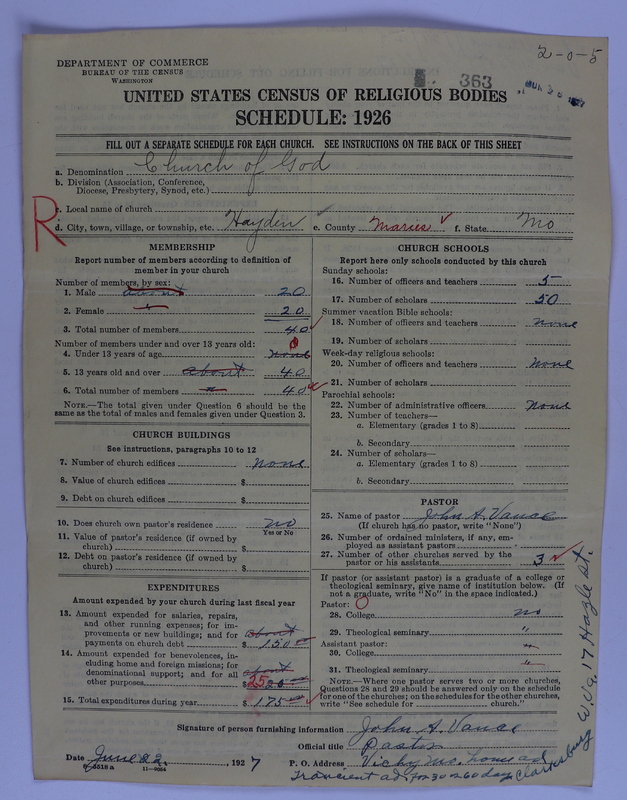 2-0-5
DEPARTMENT OF COMMERCE
BUREAU OF THE CENSUS
WASHINGTON
363
UNITED STATES CENSUS OF RELIGIOUS BODIES
SCHEDULE: 1926
FILL OUT A SEPARATE SCHEDULE FOR EACH CHURCH. SEE INSTRUCTIONS ON THE BACK OF THIS SHEET
a. Denomination Church of God
b. Division (Association, Conference,
Diocese, Presbytery, Synod, etc.)
R
c. Local name of church
d. City, town, village, or township, etc. Hayden e. County Maries f. State Mo
MEMBERSHIP
Report number of members according to definition of
member in your church
Number of members, by sex:
1. Male about 20
2. Female " 20
3. Total number of members 40
Number of members under and over 13 years old:
4. Under 13 years of age none 0
5. 13 years old and over about 40
6. Total number of members " 40
NOTE.—The total given under Question 6 should be
the same as the total of males and females given under Question 3.
CHURCH BUILDINGS
See instructions, paragraphs 10 to 12
7. Number of church edifices none
8. Value of church edifices $
9. Debt on church edifices $
10. Does church own pastor's residence no
Yes or No
11. Value of pastor's residence (if owned by
church) $
12. Debt on pastor's residence (if owned by
church) $
EXPENDITURES
Amount expended by your church during last fiscal year
13. Amount expended for salaries, repairs,
and other running expenses; for im-
provements or new buildings; and for about
payments on church debt $ 150
14. Amount expended for benevolences, in-
cluding home and foreign missions; for
denominational support; and for all about
other purposes $ 25
15. Total expenditures during year $ 175
CHURCH SCHOOLS
Report here only schools conducted by this church
Sunday schools:
16. Number of officers and teachers 5
17. Number of scholars 50
Summer vacation Bible schools:
18. Number of officers and teachers none
19. Number of scholars
Week-day religious schools:
20. Number of officers and teachers none
21. Number of scholars
Parochial schools:
22. Number of administrative officers none
23. Number of teachers—
a. Elementary (grades 1 to 8)
b. Secondary
24. Number of scholars—
a. Elementary (grades 1 to 8)
b. Secondary
PASTOR
25. Name of pastor John A. Vance
(If church has no pastor, write "None")
26. Number of ordained ministers, if any, em-
ployed as assistant pastors
27. Number of other churches served by the
pastor or his assistants 3
If pastor (or assistant pastor) is a graduate of a college or
theological seminary, give name of institution below. (If
not a graduate, write "No" in the space indicated.)
Pastor:
28. College no
29. Theological seminary "
Assistant pastor:
30. College "
31. Theological seminary "
NOTE.—Where one pastor serves two or more churches,
Questions 28 and 29 should be answered only on the schedule
for one of the churches; on the schedules for the other churches,
write "See schedule for church."
Signature of person furnishing information John A. Vance
Official title Pastor
Date June 22, 1927 P. O. Address Vichy Mo. home ad
8-5518a 11-9064
Trancient ad. for 30 or 60 day Clarksburg W. Va. 17 Hazle st.